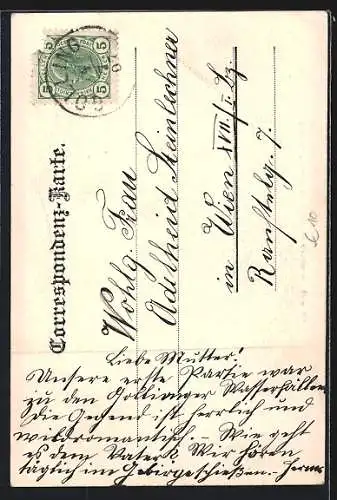 Correspondenz-Karte.
5 5
5 5
Wohlg. Frau
Adelheid Steinlechner
in Wien XVII/1. Bz.
7.
Liebe Mutter!
Unsere erste Partie war
zu den Gollinger Wasserfällen
die Gegend ist herrlich und
wildromantisch. – Wie geht
es dem Vater? Wir hören
täglich im Gebirge schießen. –